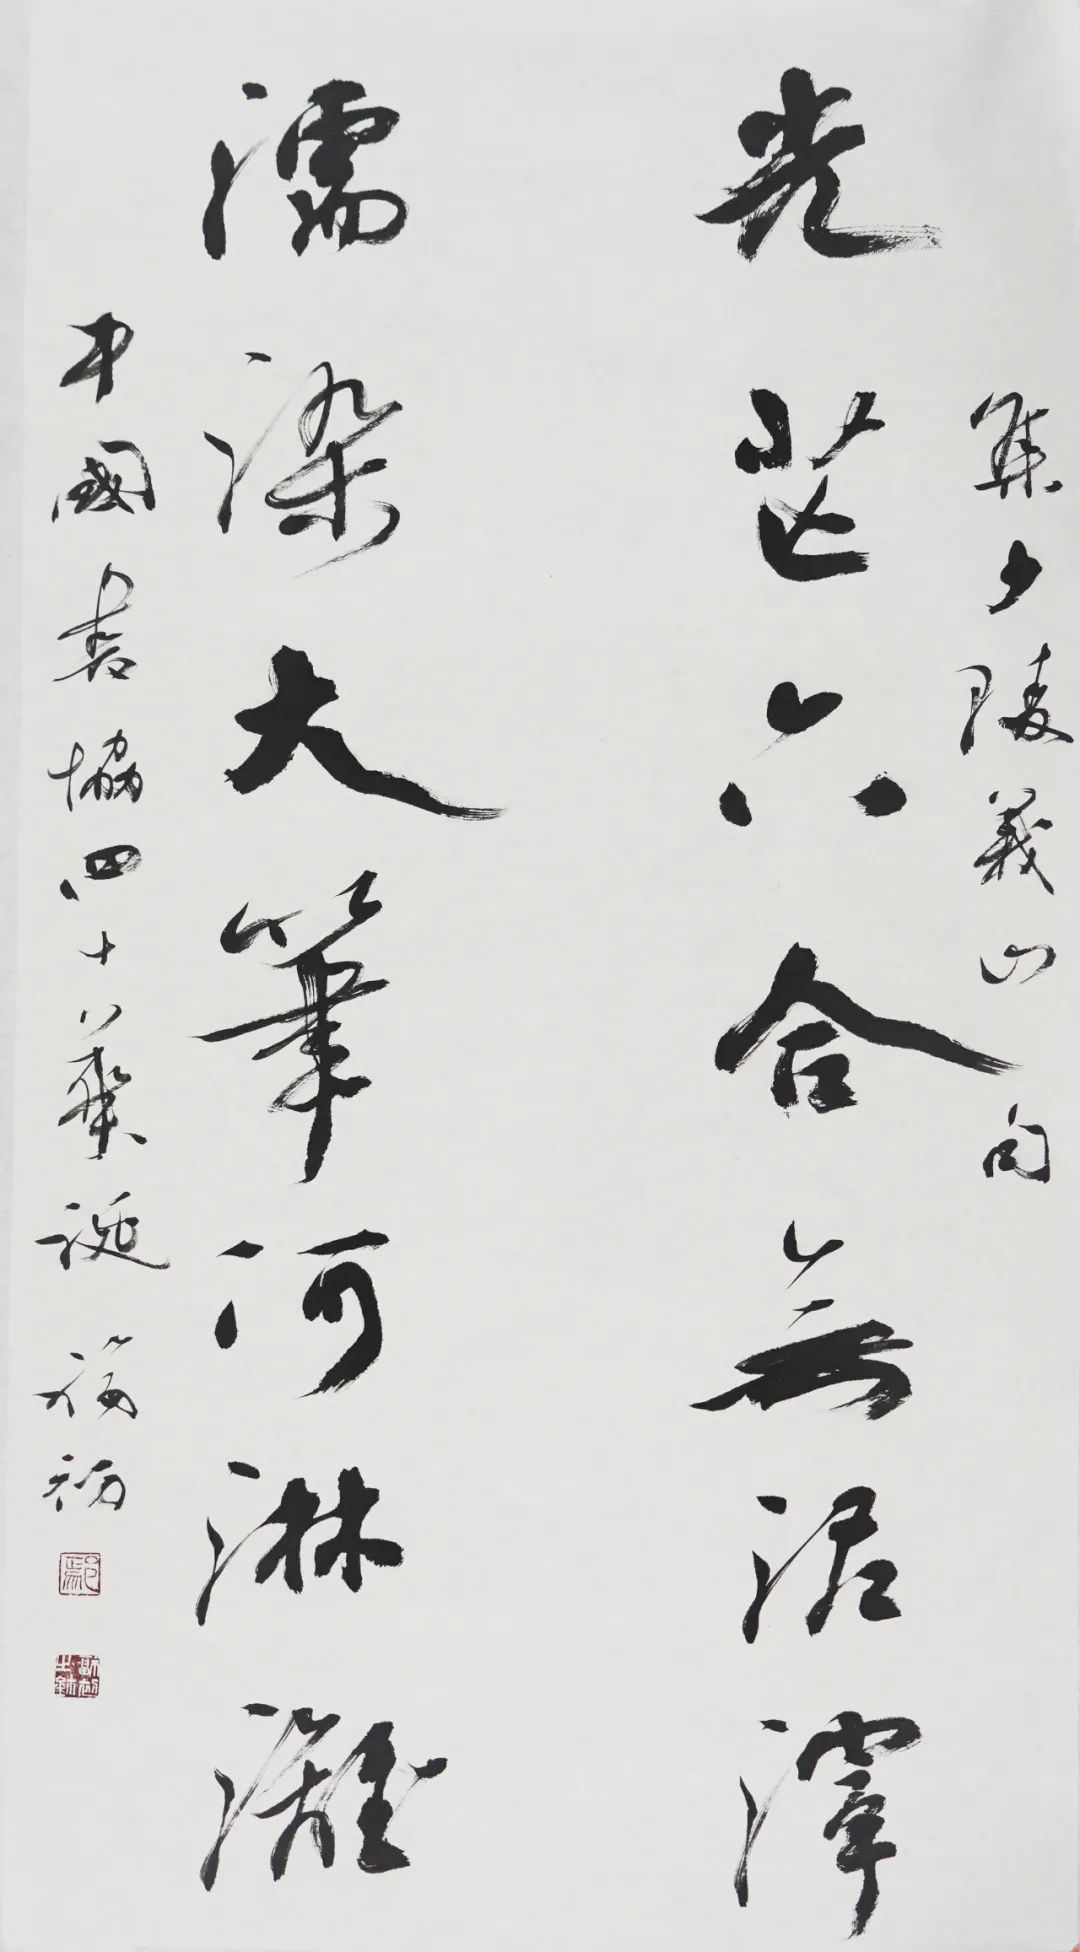 集少陵義山句
光芒六合無泥滓
濡染大筆何淋漓
中國書協四十華誕 福初
鄢